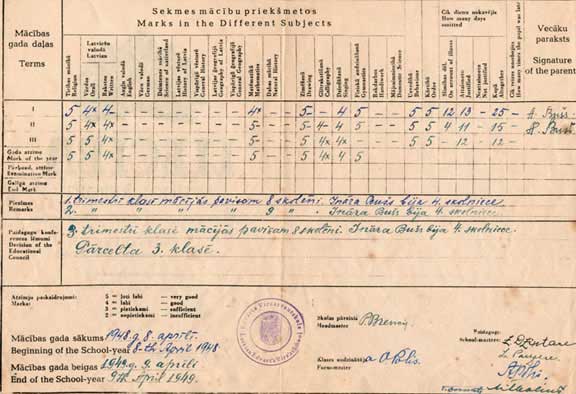 Sekmes mācību priekšmetos
Marks in the Different Subjects
Mācības gada daļas
Terms
Ticības mācība
Religion
Latviešu valodā
Latvian
Vārdos
Oral
Rakstos
Written
Angļu valodā
English
Vācu valodā
German
Dabas mācībā
Latvijas vēsturē
History of Latvia
Vispārējā vēsturē
General History
Latvijas ģeogrāfijā
Geography of Latvia
Vispārējā ģeogrāfijā
Geography
Matemātikā
Mathematics
Zīmēšanā
Drawing
Glītrakstīšanā
Calligraphy
Dziedāšanā
Singing
Fiziskā audzināšanā
Gymnastics
Rokdarbos
Handwork
Mājturībā
Domestic Science
Uzvedībā
Behaviour
Kārtībā
Cik dienu nokavējis
How many days omitted
Slimības dēļ
On account of illness
Attaisnotas
Justified
Neattaisnotas
Not justified
Kopā
Altogether
Cik reizes nokavējies
How many times the pupil was late
Vecāku paraksts
Signature of the parent
I 5 4x 4 - - - - - - - 4x - 5 - - 4 5 - - 5 5 12 13 - 25 - Bušs
II 5 4x 4x - - - - - - - 5 - 5 4 4 5 - - 5 5 4 11 - 15 - Bušs
III 5 4x 4x - - - - - - - 5 - 5 4x 4x - - - 5 5 - 12 - 12 -
Gada atzīme
Mark of the year 5 4x 4x - - - - - - - 5 - 5 4x 4 5
Pārbaud. atzīme
Examination Mark
Galīga atzīme
End Mark
Piezīmes
Remarks
1. trimestrī klasē mācījās pavisam 8 skolēni. Ināra Bušs bija 4. skolniece.
2. " " " " 9 " . Ināra Bušs bija 4. skolniece.
Pedagogu konferences lēmumi
Decision of the Educational Council
3. trimestrī klasē mācījās pavisam 8 skolēni. Ināra Bušs bija 4. skolniece.
Pārcelta 3. klasē.
Atzīmju paskaidrojumi:
Marks:
5 = ļoti labi — very good
4 = labi — good
3 = pietiekami — sufficient
2 = nepietiekami — insufficient
Mācības gada sākums 1948. g. 8. aprīlī.
Beginning of the School-year 8-th April 1948
Mācības gada beigas 1949. g. 9. aprīlī
End of the School-year 9th April 1949.
Skolas pārzinis
Headmaster
Klases audzinātājs
Formmaster
Pedagogi:
School-masters: